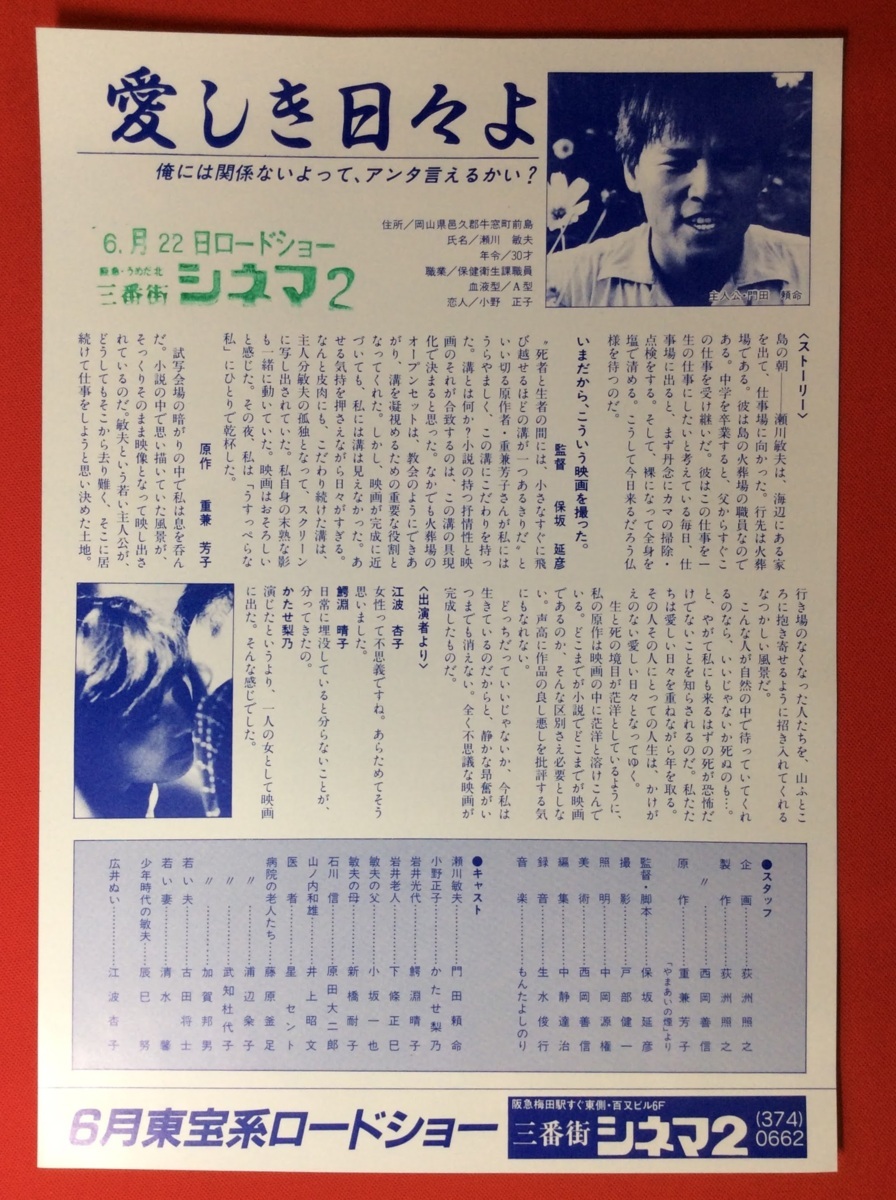 愛しき日々よ
俺には関係ないよって、アンタ言えるかい?
6.月22日ロードショー
阪急・うめだ北
三番街シネマ2
住所/岡山県邑久郡牛窓町前島
氏名/瀬川 敏夫
年令/30才
職業/保健衛生課職員
血液型/A型
恋人/小野 正子
主人公・門田 頼命
〈ストーリー〉
島の朝――瀬川敏夫は、海辺にある家
を出て、仕事場に向かった。行先は火葬
場である。彼は島の火葬場の職員なので
ある。中学を卒業すると、父からすぐこ
の仕事を受け継いだ。彼はこの仕事を一
生の仕事にしたいと考えている毎日、仕
事場に出ると、まず丹念にカマの掃除・
点検をする。そして、裸になって全身を
塩で清める。こうして今日来るだろう仏
様を待つのだ。
いまだから、こういう映画を撮った。
監督 保坂 延彦
“死者と生者の間には、小さなすぐに飛
び越せるほどの溝が一つあるきりだ”と
いい切る原作者・重兼芳子さんが私には
うらやましく、この溝にこだわりを持っ
た。溝とは何か?小説の持つ抒情性と映
画のそれが合致するのは、この溝の具現
化で決まると思った。なかでも火葬場の
オープンセットは、教会のようにできあ
がり、溝を凝視めるための重要な役割と
なってくれた。しかし、映画が完成に近
づいても、私には溝は見えなかった。あ
せる気持を押さえながら日々がすぎる。
なんと皮肉にも、こだわり続けた溝は、
主人分敏夫の孤独となって、スクリーン
に写し出されていた。私自身の未熟な影
も一緒に動いていた。映画はおそろしい
と感じた。その夜、私は「うすっぺらな
私」にひとりで乾杯した。
原作 重兼 芳子
試写会場の暗がりの中で私は息を呑ん
だ。小説の中で思い描いていた風景が、
そっくりそのまま映像となって映し出さ
れているのだ。敏夫という若い主人公が、
どうしてもそこから去り難く、そこに居
続けて仕事をしようと思い決めた土地。
行き場のなくなった人たちを、山ふとこ
ろに抱き寄せるように招き入れてくれる
なつかしい風景だ。
こんな人が自然の中で待っていてくれ
るのなら、いいじゃないか死ぬのも…。
と、やがて私にも来るはずの死が恐怖だ
けでないことを知らされるのだ。私たた
ちは愛しい日々を重ねながら年を取る。
その人その人にとっての人生は、かけが
えのない愛しい日々となってゆく。
生と死の境目が茫洋としているように、
私の原作は映画の中に茫洋と溶けこんで
いる。どこまでが小説でどこまでが映画
であるのか、そんな区別さえ必要としな
い。声高に作品の良し悪しを批評する気
にもなれない。
どっちだっていいじゃないか、今私は
生きているのだからと、静かな昂奮がい
つまでも消えない。全く不思議な映画が
完成したものだ。
〈出演者より〉
江波 杏子
女性って不思議ですね。あらためてそう
思いました。
鰐淵 晴子
日常に埋没していると分らないことが、
分ってきたの。
かたせ梨乃
演じたというより、一人の女として映画
に出た。そんな感じでした。
●スタッフ
企画………荻洲照之
製作………荻洲照之
〃………西岡善信
原作………重兼芳子
「やまあいの煙」より
監督・脚本………保坂延彦
撮影………戸部健一
照明………中岡源権
美術………西岡善信
編集………中静達治
録音………生水俊行
音楽………もんたよしのり
●キャスト
瀬川敏夫………門田頼命
小野正子………かたせ梨乃
岩井光代………鰐淵晴子
岩井老人………下條正巳
敏夫の父………小坂一也
敏夫の母………新橋耐子
石川信………原田大二郎
山ノ内和雄………井上昭文
医者………星セント
病院の老人たち………藤原釜足
〃………浦辺粂子
〃………武知杜代子
〃………加賀邦男
若い夫………古田将士
若い妻………清水馨
少年時代の敏夫………辰巳努
広井ぬい………江波杏子
6月東宝系ロードショー
阪急梅田駅すぐ東側・百又ビル6F
三番街シネマ2
(374)
0662